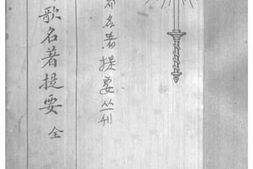 名著提要丛刊
歌名著提要 全